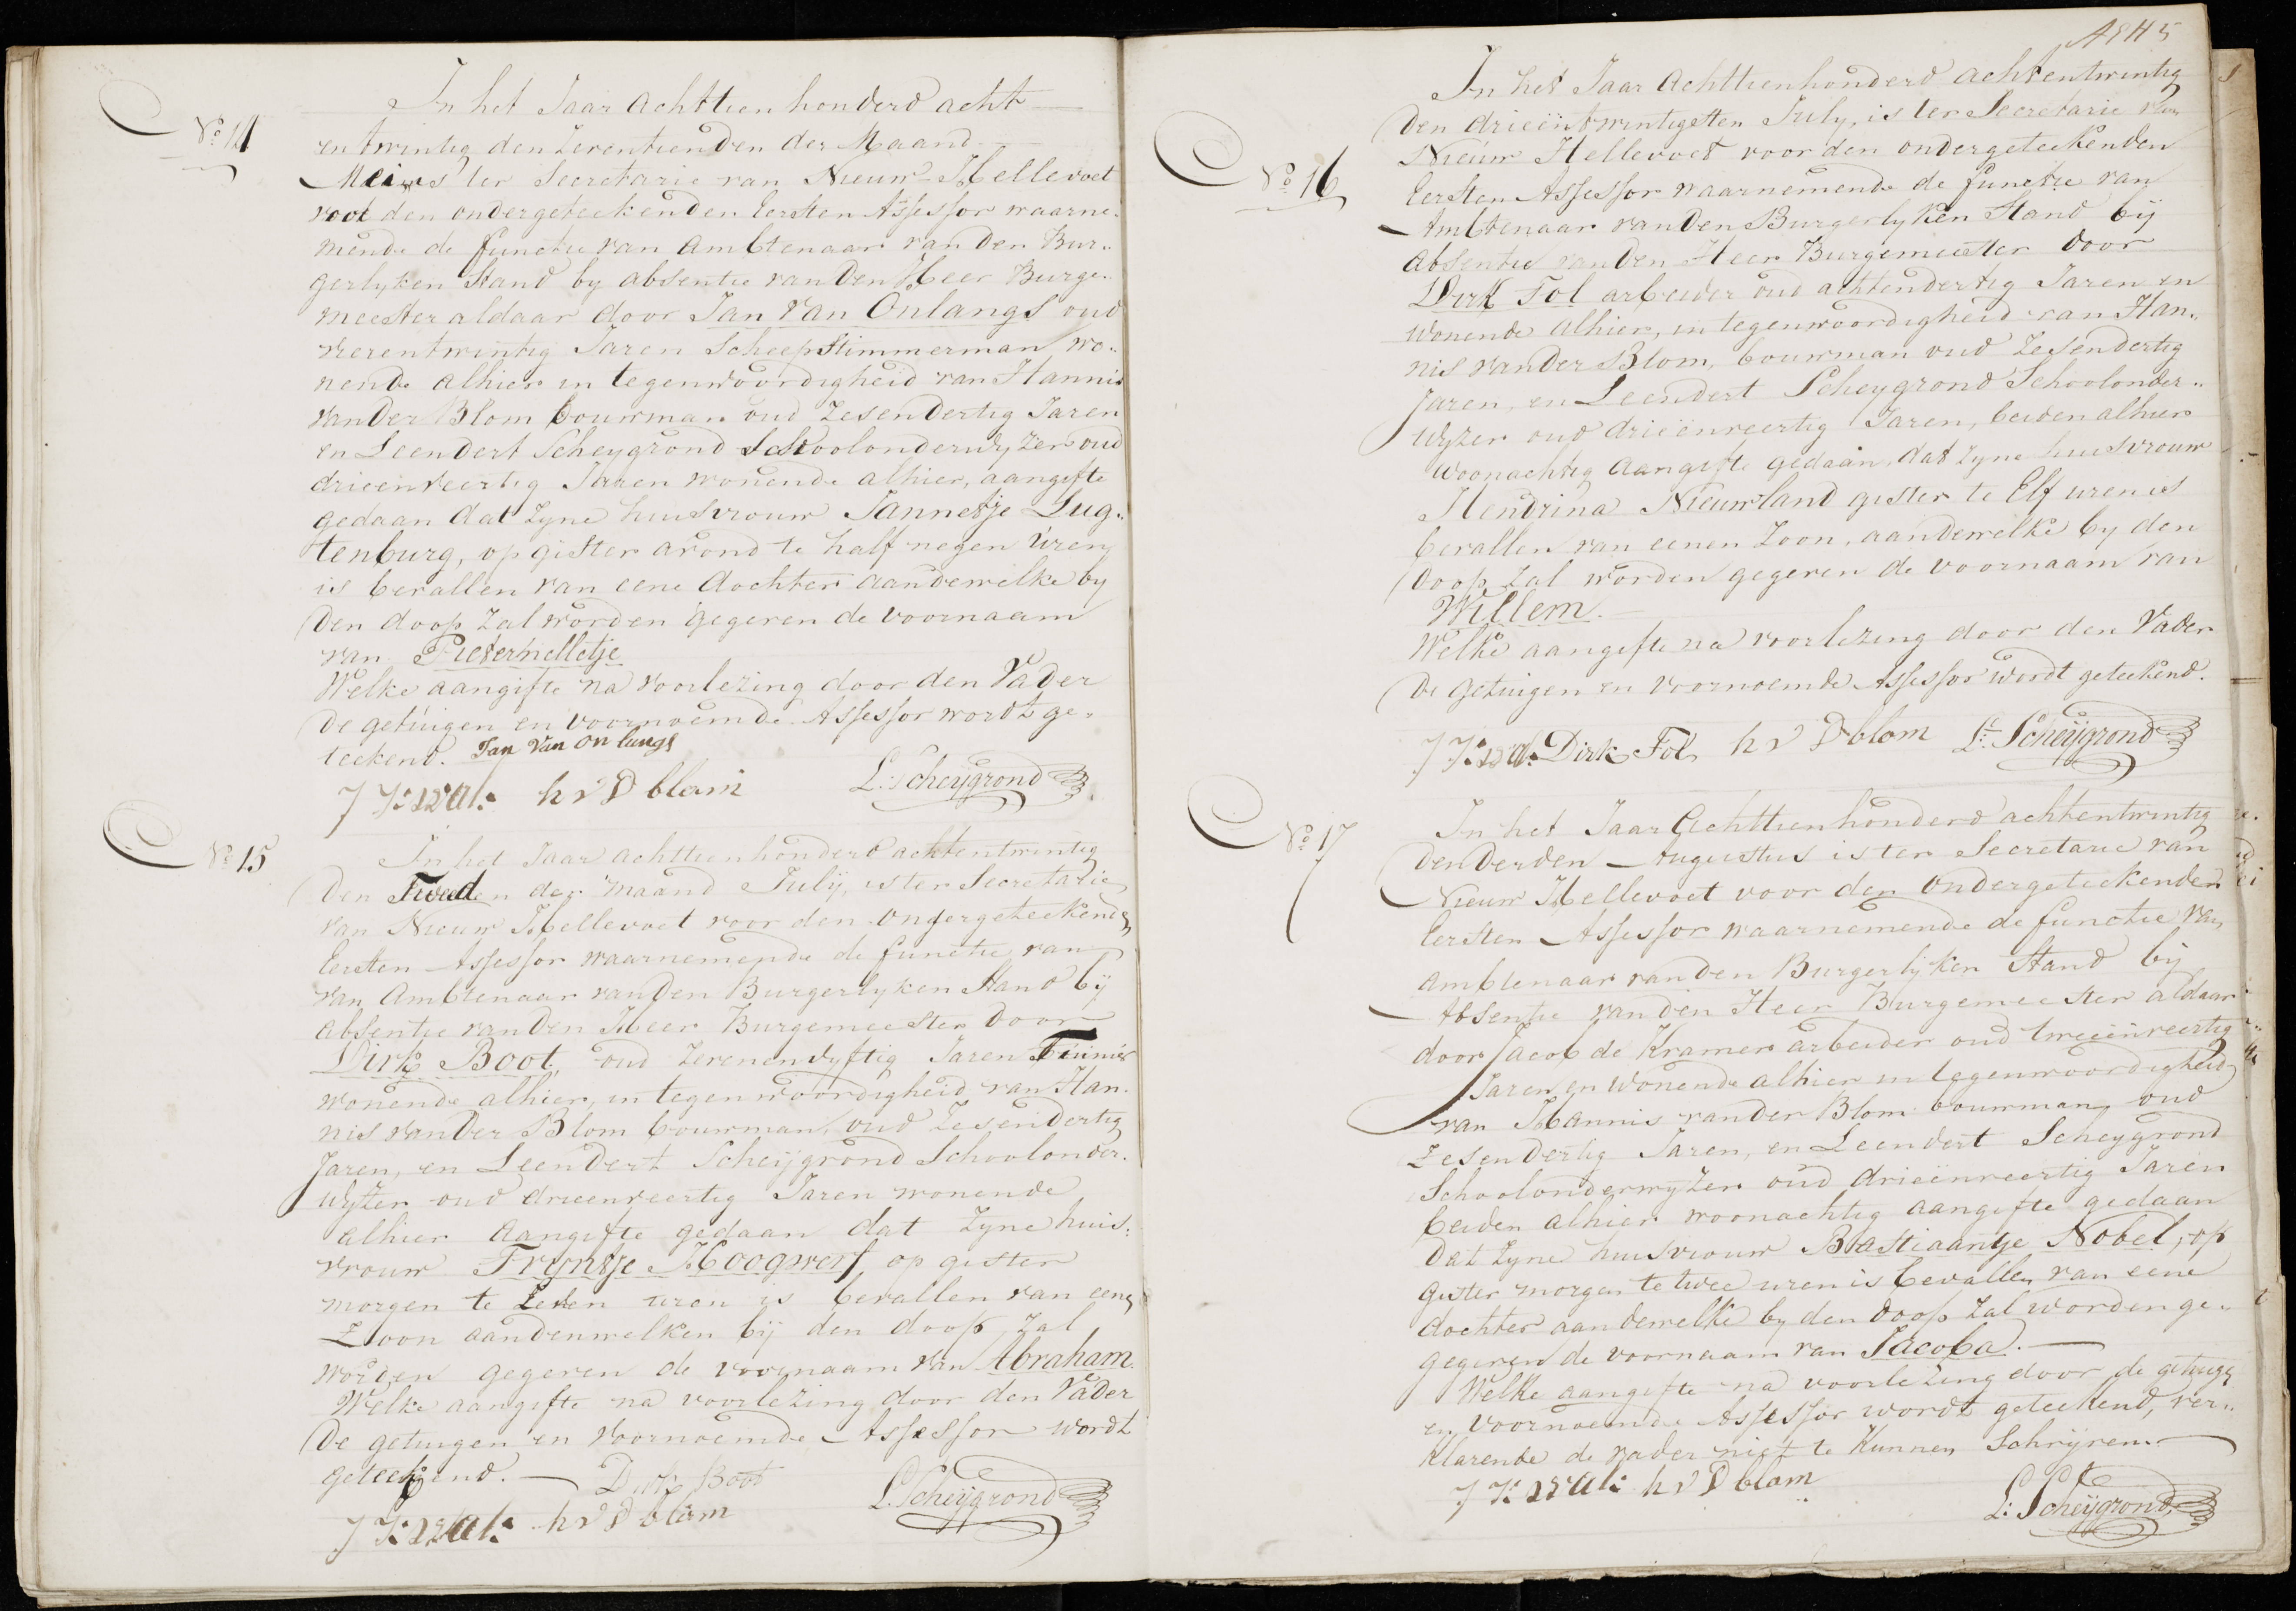 No 14
In het Jaar achttien honderd acht
entwintig den Zeventienden der Maand
Mei is ter Secretarie van Nieuw-Hellevoet
voor den ondergeteekenden Eersten Assessor waarne-
mende de functie van Ambtenaar van den Bur-
gerlyken Stand by absentie van den Heer Burge-
meester aldaar door Jan Van Onlangs oud
vierentwintig Jaren Scheepstimmerman wo-
nende alhier in tegenwoordigheid van Hannis
van der Blom bouwman oud Zesendertig Jaren
en Leendert Scheygrond Schoolonderwyzer oud
drieenveertig Jaren wonende alhier, aangifte
gedaan dat Zyne huisvrouw Jannetje Lug-
tenburg, op gister avond te half negen uren
is bevallen van eene dochter aan dewelke by
den doop Zal worden gegeven de voornaam
van Pieternelletje
Welke aangifte na voorlezing door den Vader
de getuigen en voornoemde Assessor wordt ge-
teekend. Jan Van On langs
h v D blom L. Scheijgrond
No 15
In het Jaar achttienhonderd achtentwintig
den Tweeden der maand Julij, is ter Secretarie
van Nieuw Hellevoet voor den ondergeteekenden
Eersten Assessor waarnemende de functie van
van Ambtenaar van den Burgerlyken Stand bij
absentie van den Heer Burgemeester door
Dirk Boot, oud Zevenenvyftig Jaren Tuinier
wonende alhier, in tegenwoordigheid van Han-
nis van der Blom bouwman, oud Zesendertig
Jaren, en Leendert Scheijgrond Schoolonder-
wyzer oud drieenveertig Jaren wonende
alhier aangifte gedaan dat Zyne huis-
vrouw Tryntje Hoogwerf op gister
morgen te Zeven uren is bevallen van eenen
Zoon aan denwelken bij den doop Zal
worden gegeven de voornaam van Abraham.
Welke aangifte na voorlezing door den Vader
de getuigen en voornoemde Assessor wordt
geteekend. Dirk Boot
h v D blom L. Scheijgrond
No 16
In het Jaar Achttienhonderd achtentwintig
den drieëntwintigsten July, is ter Secretarie van
Nieuw Hellevoet voor den ondergeteekenden
Eersten Assessor waarnemende de functie van
Ambtenaar van den Burgerlyken Stand bij
Absentie van den Heer Burgemeester door
Dirk Fol arbeider oud achtendertig Jaren en
wonende alhier, in tegenwoordigheid van Han-
nis van der Blom, bouwman oud Zesendertig
Jaren, en Leendert Scheygrond Schoolonder-
wyzer oud drieënveertig Jaren, beiden alhier
woonachtig aangifte gedaan, dat Zyne huisvrouw
Hendrina Nieuwland gister te Elf uren is
bevallen van eenen Zoon, aan dewelke by den
doop Zal worden gegeven de voornaam van
Willem.
Welke aangifte na voorlezing door den Vader
de Getuigen en voornoemde Assessor wordt geteekend.
Dirk Fol h v D blom L. Scheijgrond
No 17
In het Jaar Achttienhonderd achtentwintig
den derden Augustus is ter Secretarie van
Nieuw Hellevoet voor den Ondergeteekenden
Eersten Assessor waarnemende de functie van
Ambtenaar van den Burgerlijken Stand bij
Absentie van den Heer Burgemeester aldaar
door Jacob de Kramer arbeider oud tweeënveertig
Jaren en wonende alhier in tegenwoordigheid
van Hannis van der Blom bouwman oud
Zesendertig Jaren, en Leendert Scheygrond
Schoolonderwyzer oud drieënveertig Jaren
beiden alhier woonachtig aangifte gedaan
dat Zyne huisvrouw Bastiaantje Nobel, op
gister morgen te twee uren is bevallen van eene
dochter aan dewelke by den doop Zal worden ge-
gegeven de voornaam van Jacoba.
Welke aangifte na voorlezing door de getuigen
en voornoemde Assessor wordt geteekend, ver-
klarende de vader niet te kunnen Schrijven.
h v D blom L. Scheijgrond